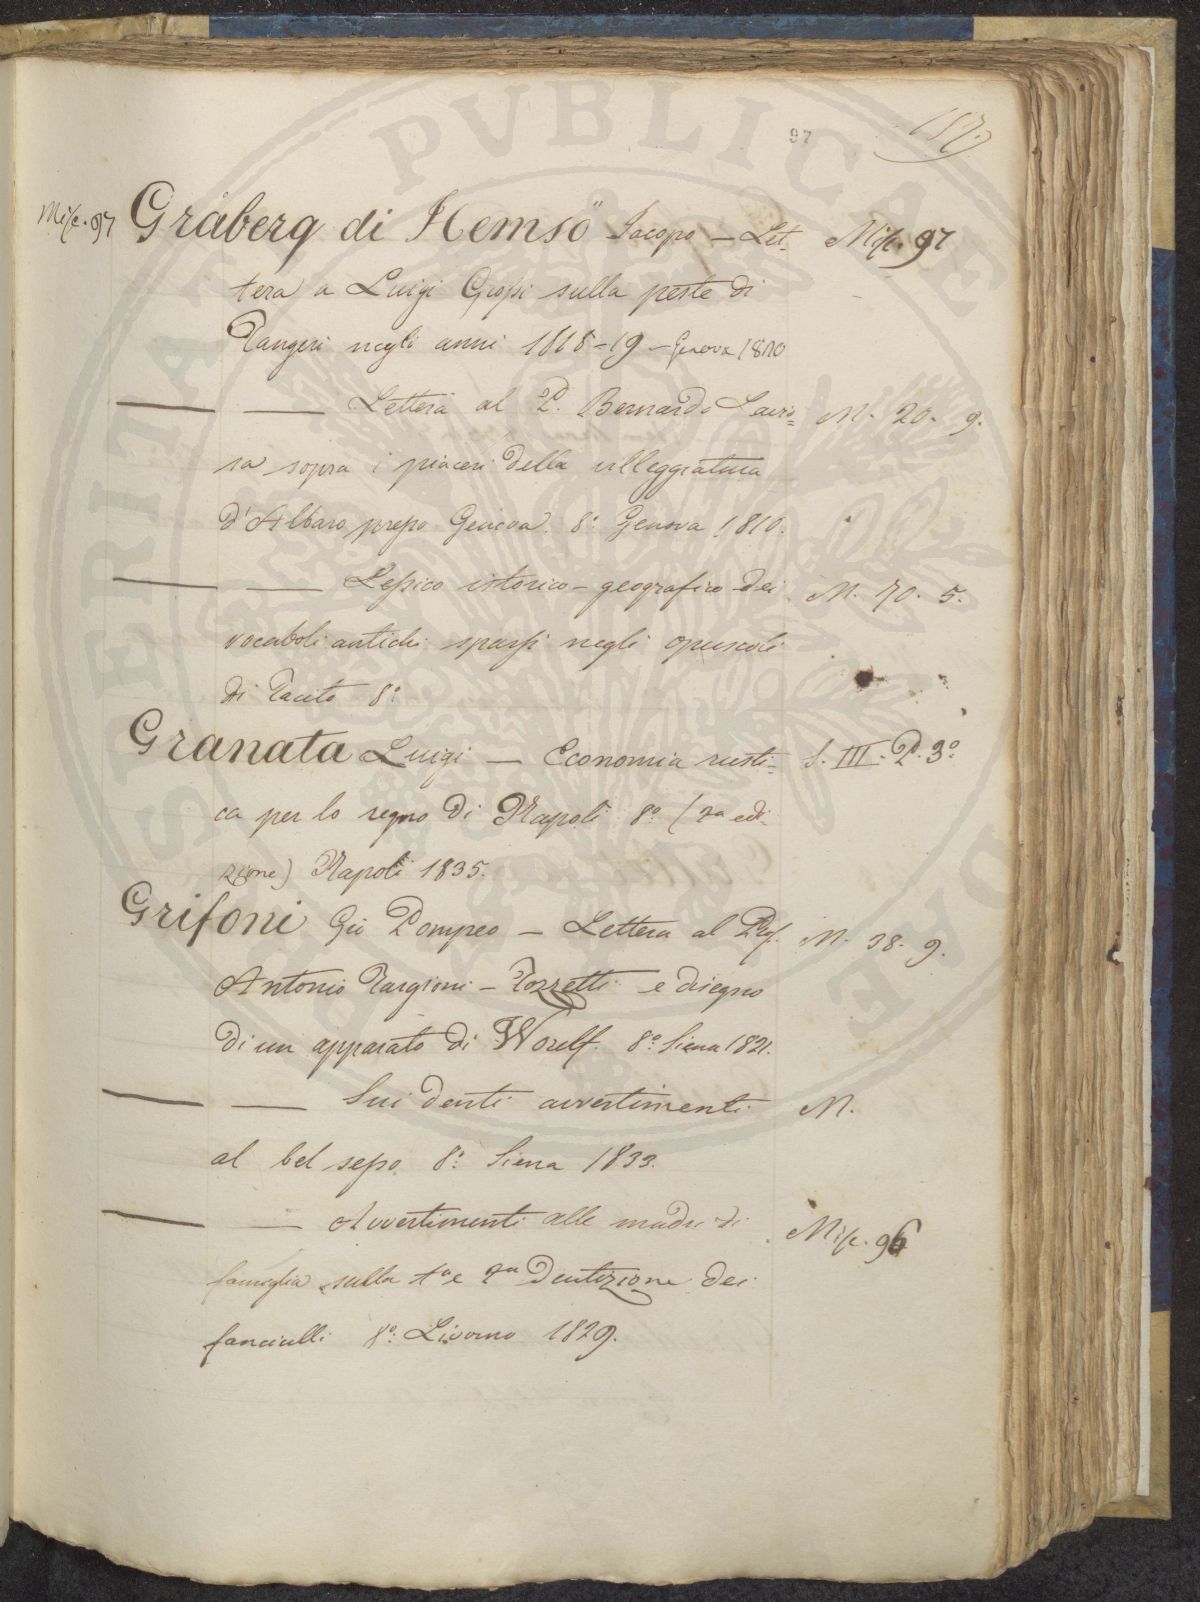 97
157.
Misc. 97 Gråberg di Hemsö Jacopo - Let= Misc. 97
tera a Luigi Grossi sulla peste di
Tangeri negli anni 1818-19 - Genova 1820
Lettera al P. Bernardo Lavio=
sa sopra i piaceri della villeggiatura M. 20. 9.
d'Albaro presso Genova. 8º Genova 1810.
Lessico istorico-geografico dei M. 70. 5.
vocaboli antichi sparsi negli opuscoli
di Tacito 8º
Granata Luigi - Economia rusti= S. III. P. 3º
ca per lo regno di Napoli 8º (2ª edi-
zione) Napoli 1835.
Grifoni Gio Pompeo - Lettera al Prof. M. 38. 9.
Antonio Targioni-Tozzetti e disegno
di un apparato di Woulf. 8º Siena 1821.
Sui denti avvertimenti M.
al bel sesso 8º Siena 1833.
Avvertimenti alle madri di Misc. 96
famiglia sulla 1ª e 2ª Dentizione dei
fanciulli 8º Livorno 1829.
PVBLICAE